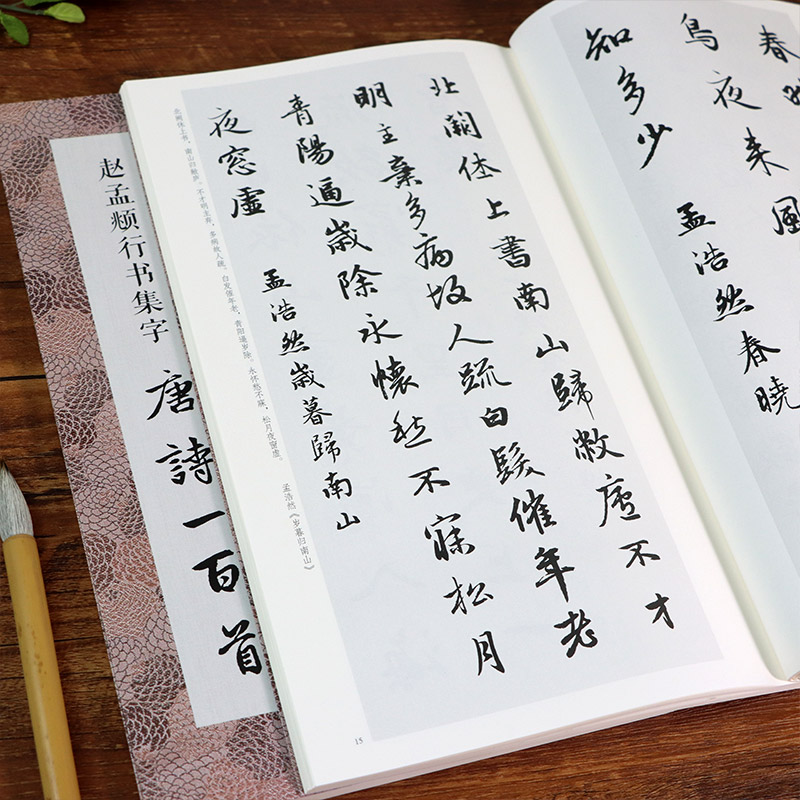 春眠
鳥夜来風
知多少
孟浩然春曉
北闕休上書南山歸敝廬不才
明主棄多病故人疏白髮催年老
青陽逼歲除永懷愁不寐松月
夜窓虛
孟浩然歲暮歸南山
北阙休上书，南山归敝庐。不才明主弃，多病故人疏。白发催年老，青阳逼岁除。永怀愁不寐，松月夜窗虚。 孟浩然《岁暮归南山》
15
赵孟頫行书集字
唐詩一百首